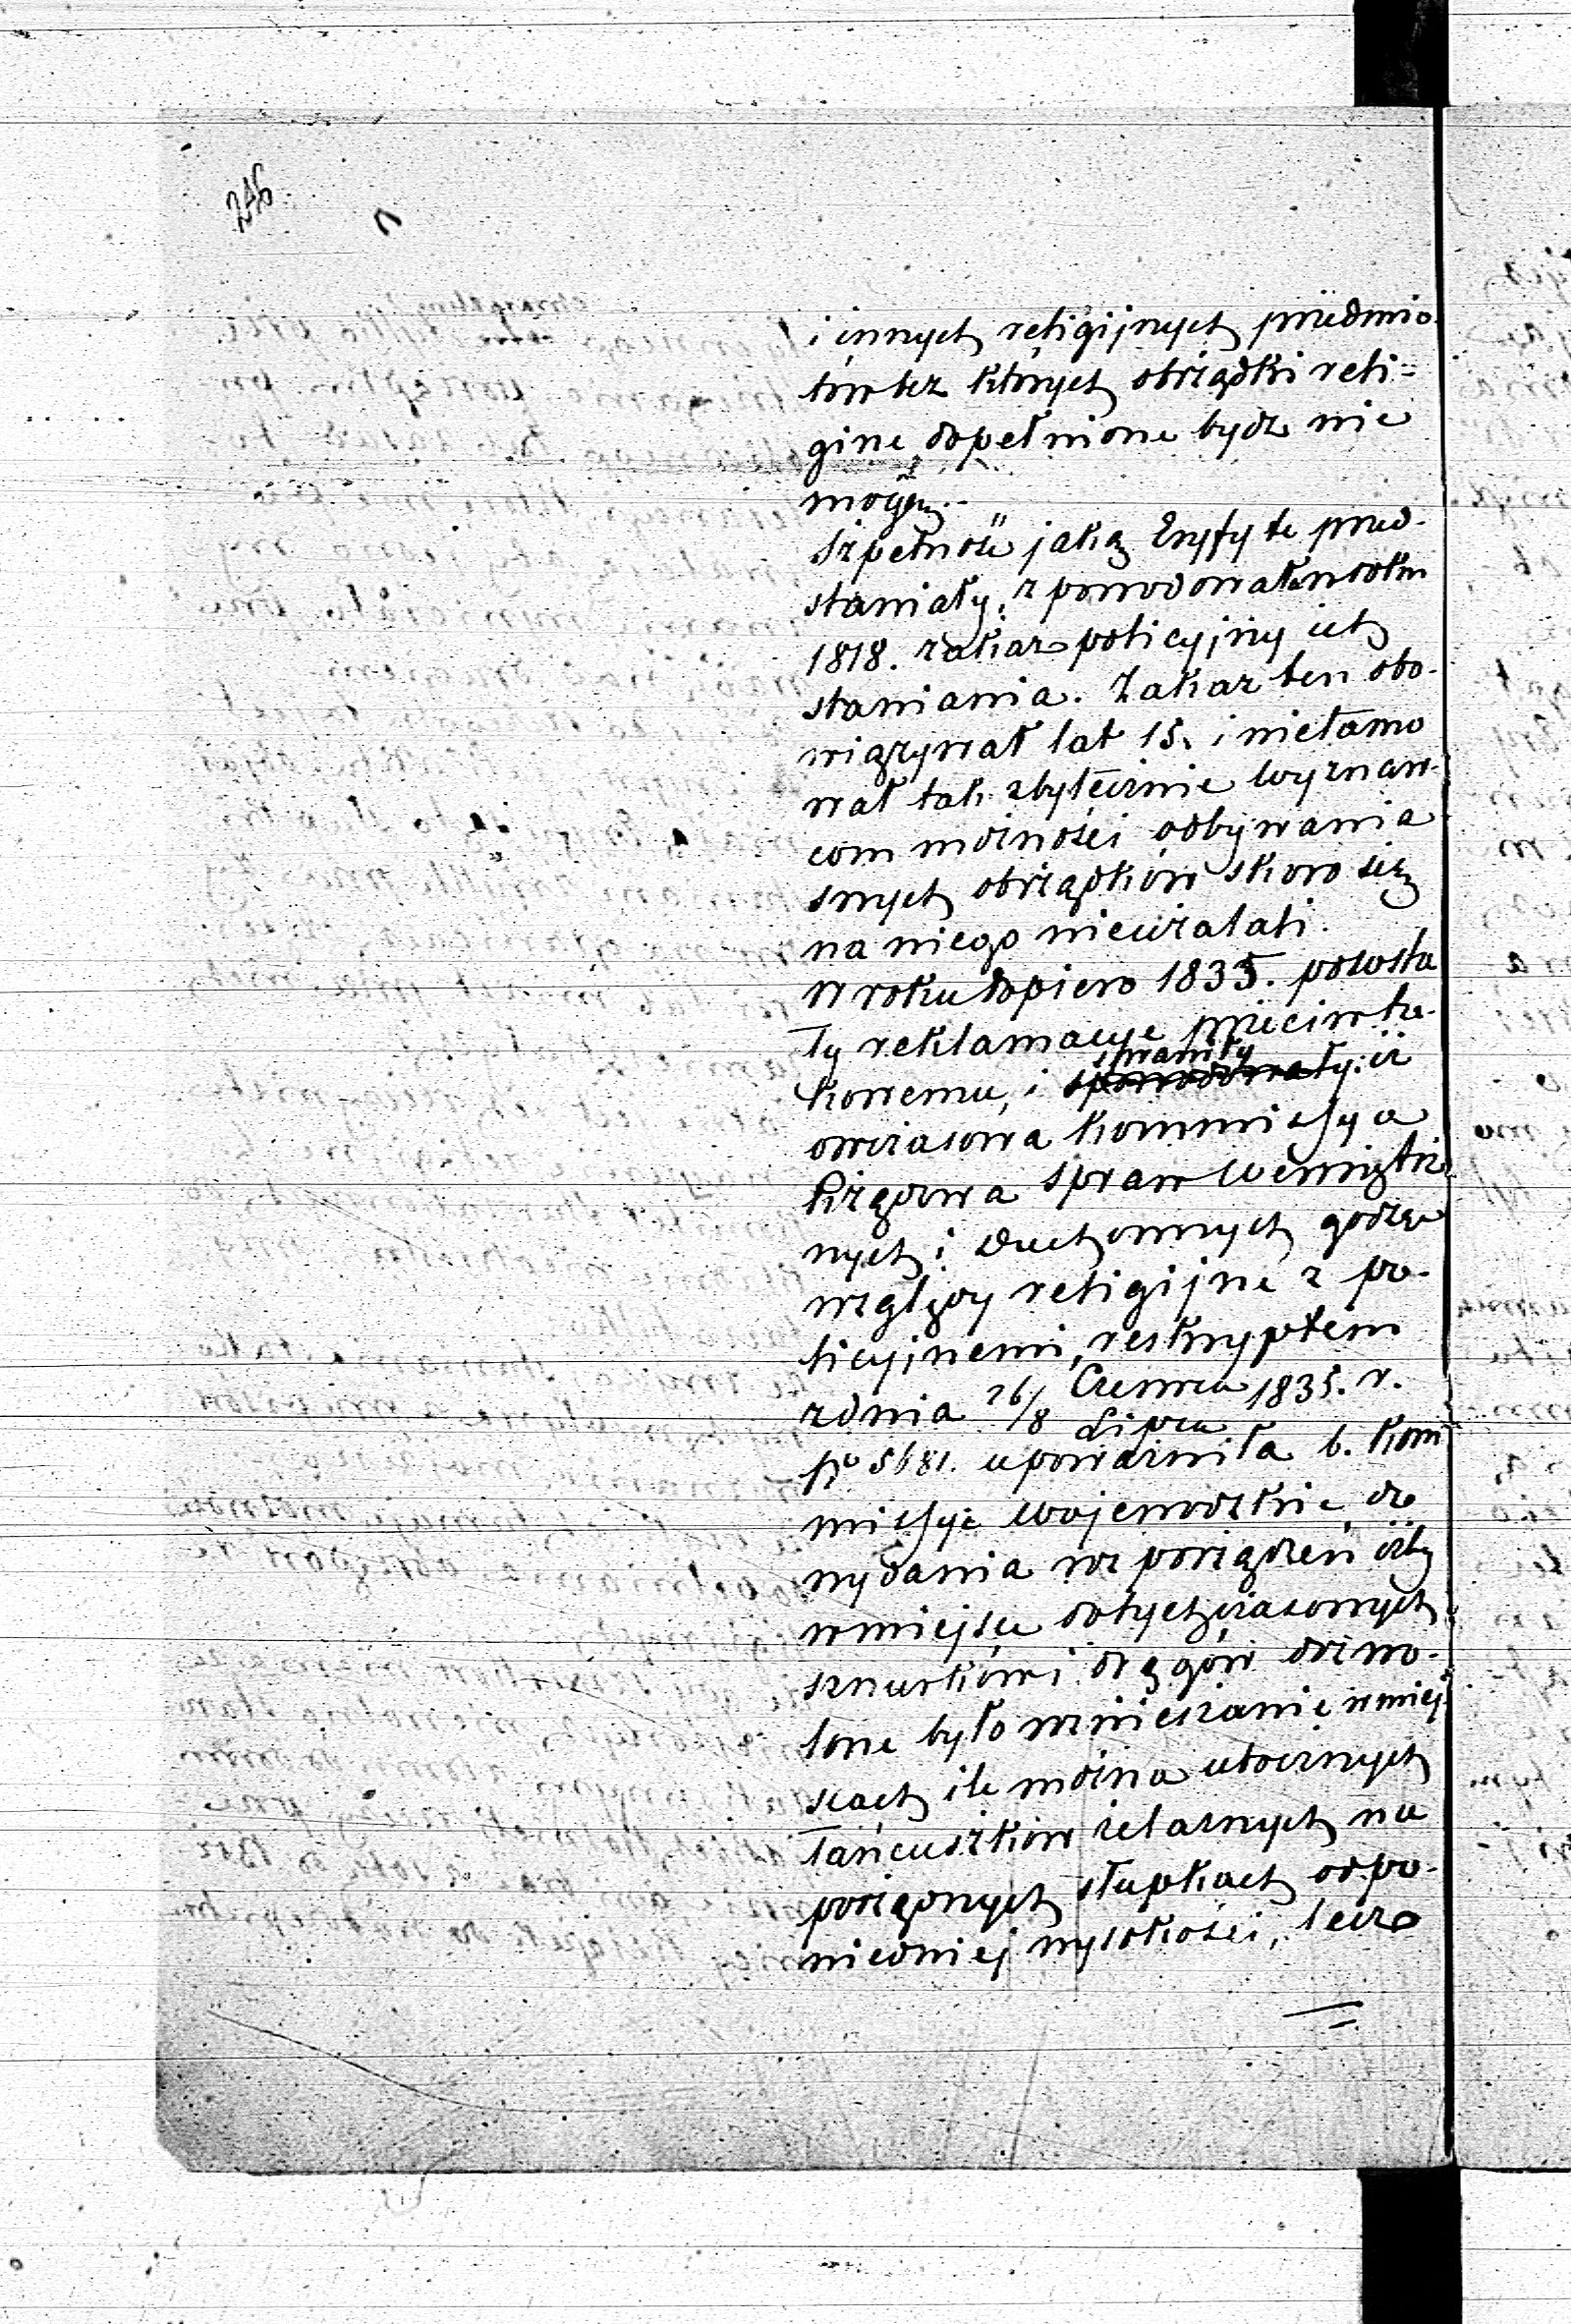 246
i innych religijnych przedmio-
tów bez których obrządki reli-
gine dopełnione bydz nie
mogą.
Szpetność jaką Eryfy te przed-
stawiały, spowodowała w roku
1818. zakaz policyjny ich
stawiania. Zakaz ten obo-
wiązywał lat 15. i nietamo
wał tak zbytecznie wyznaw-
com możności odbywania
swych obrządków skoro się
na niego nieużalali.
W roku dopiero 1835. powsta
ły reklamacye przeciw ta-
kowemu, i sprawiły iż
owczasowa Kommissya
Rządowa Spraw Wewnętrz
nych i Duchownych godząc
względy religijne z po-
licyjnemi, reskryptem
z dnia 26/8 Czerwca/Lipca 1835. r.
No 5681. upoważniła b. Kom
missye Wojewódzkie, do
wydania rozporządzeń iżby
w miejscu dotychczasowych
sznurków i drągów dozwo-
lone było wznieszanie w miej
scach ile można ubocznych
łańcuszków żelaznych na
porządnych słupkach odpo-
wiedniej wysokości, lecz